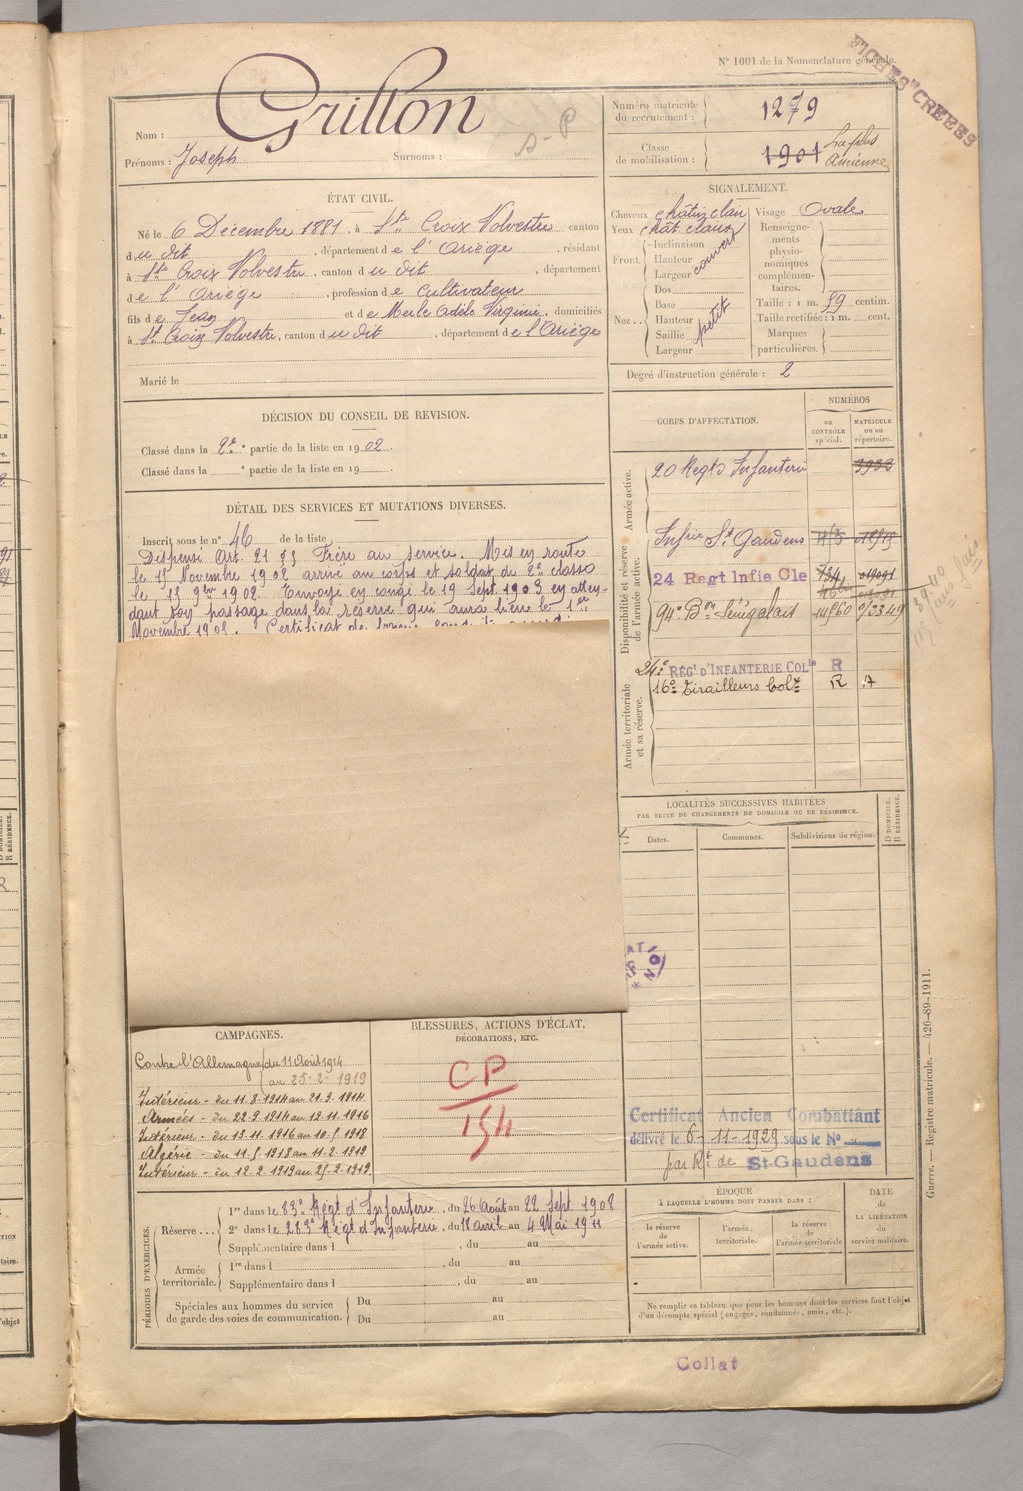 N° 1001 de la Nomenclature générale.
FICHES CRÉÉES
Nom : Grillon
Prénoms : Joseph Surnoms :
S-P
Numéro matricule du recrutement : 1279
Classe de mobilisation : 1901 La plus Ancienne
ÉTAT CIVIL.
Né le 6 Décembre 1881, à Ste Croix Volvestre canton
du dit, département de l'Ariège, résidant
à Ste Croix Volvestre, canton du dit, département
de l'Ariège, profession de Cultivateur
fils de Jean et de Merle Adèle Virginie, domiciliés
à Ste Croix Volvestre, canton du dit, département de l'Ariège
Marié le
SIGNALEMENT.
Cheveux châtin clair
Yeux chât clairs
Front. Inclinaison
Hauteur
Largeur
couvert
Nez... Dos
Base
Hauteur
Saillie
Largeur
petit
Visage Ovale
Renseignements physionomiques complémentaires.
Taille : 1 m. 59 centim.
Taille rectifiée : 1 m. cent.
Marques particulières.
Degré d'instruction générale : 2
DÉCISION DU CONSEIL DE REVISION.
Classé dans la 2e partie de la liste en 1902.
Classé dans la ° partie de la liste en 19 .
DÉTAIL DES SERVICES ET MUTATIONS DIVERSES.
Inscrit sous le n° 46 de la liste
Dispensé Art. 21 § 5 Frère au service. Mis en route
le 15 Novembre 1902 arrivé au corps et soldat de 2e classe
le 15 9bre 1902. Envoyé en congé le 19 Sept. 1903 en atten-
dant son passage dans la réserve qui aura lieu le 1er
Novembre 1905. Certificat de bonne conduite
CORPS D'AFFECTATION.
NUMÉROS
au CONTRÔLE spécial.
MATRICULE ou au répertoire.
Armée active.
20 Regt d'Infanterie 3933
Disponibilité et réserve de l'armée active.
Infrie St Gaudens
24 Regt Infie Cle 734 019091
94e Bon Sénégalais 14560 9/3349
Armée territoriale et sa réserve.
24e RÉGt D'INFANTERIE COLle R
16e Tirailleurs Colx R A
LOCALITÉS SUCCESSIVES HABITÉES
PAR SUITE DE CHANGEMENTS DE DOMICILE OU DE RÉSIDENCE.
Dates. Communes. Subdivisions de région.
D DOMICILE.
R RÉSIDENCE.
CAMPAGNES.
Contre l'Allemagne du 11 Août 1914
au 25-2-1919
Intérieur - du 11.8-1914 au 21.9.1914
Armées - du 22.9.1914 au 12.11.1916
Intérieur - du 13.11.1916 au 10.5.1918
Algérie - du 11.5.1918 au 11.2.1919
Intérieur - du 12.2.1919 au 25.2.1919
BLESSURES, ACTIONS D'ÉCLAT,
DÉCORATIONS, ETC.
CP
154
Certificat Ancien Combattant
délivré le 6-11-1929 sous le N°
par Rt de St-Gaudens
PÉRIODES D'EXERCICES.
Réserve... 1re dans le 83e Régt d'Infanterie, du 26 Août au 22 Sept. 1908
2e dans le 283e Régt d'Infanterie, du 18 avril au 4 Mai 1911
Supplémentaire dans l , du au
Armée territoriale. 1re dans l , du au
Supplémentaire dans l , du au
Spéciales aux hommes du service de garde des voies de communication. Du au
Du au
ÉPOQUE
À LAQUELLE L'HOMME DOIT PASSER DANS :
la réserve de l'armée active.
l'armée territoriale.
la réserve de l'armée territoriale
DATE de LA LIBÉRATION du service militaire.
Ne remplir ce tableau que pour les hommes dont les services font l'objet
d'un décompte spécial (engagés, condamnés, omis, etc.).
Guerre. — Registre matricule. — 426-89-1911.
Collat